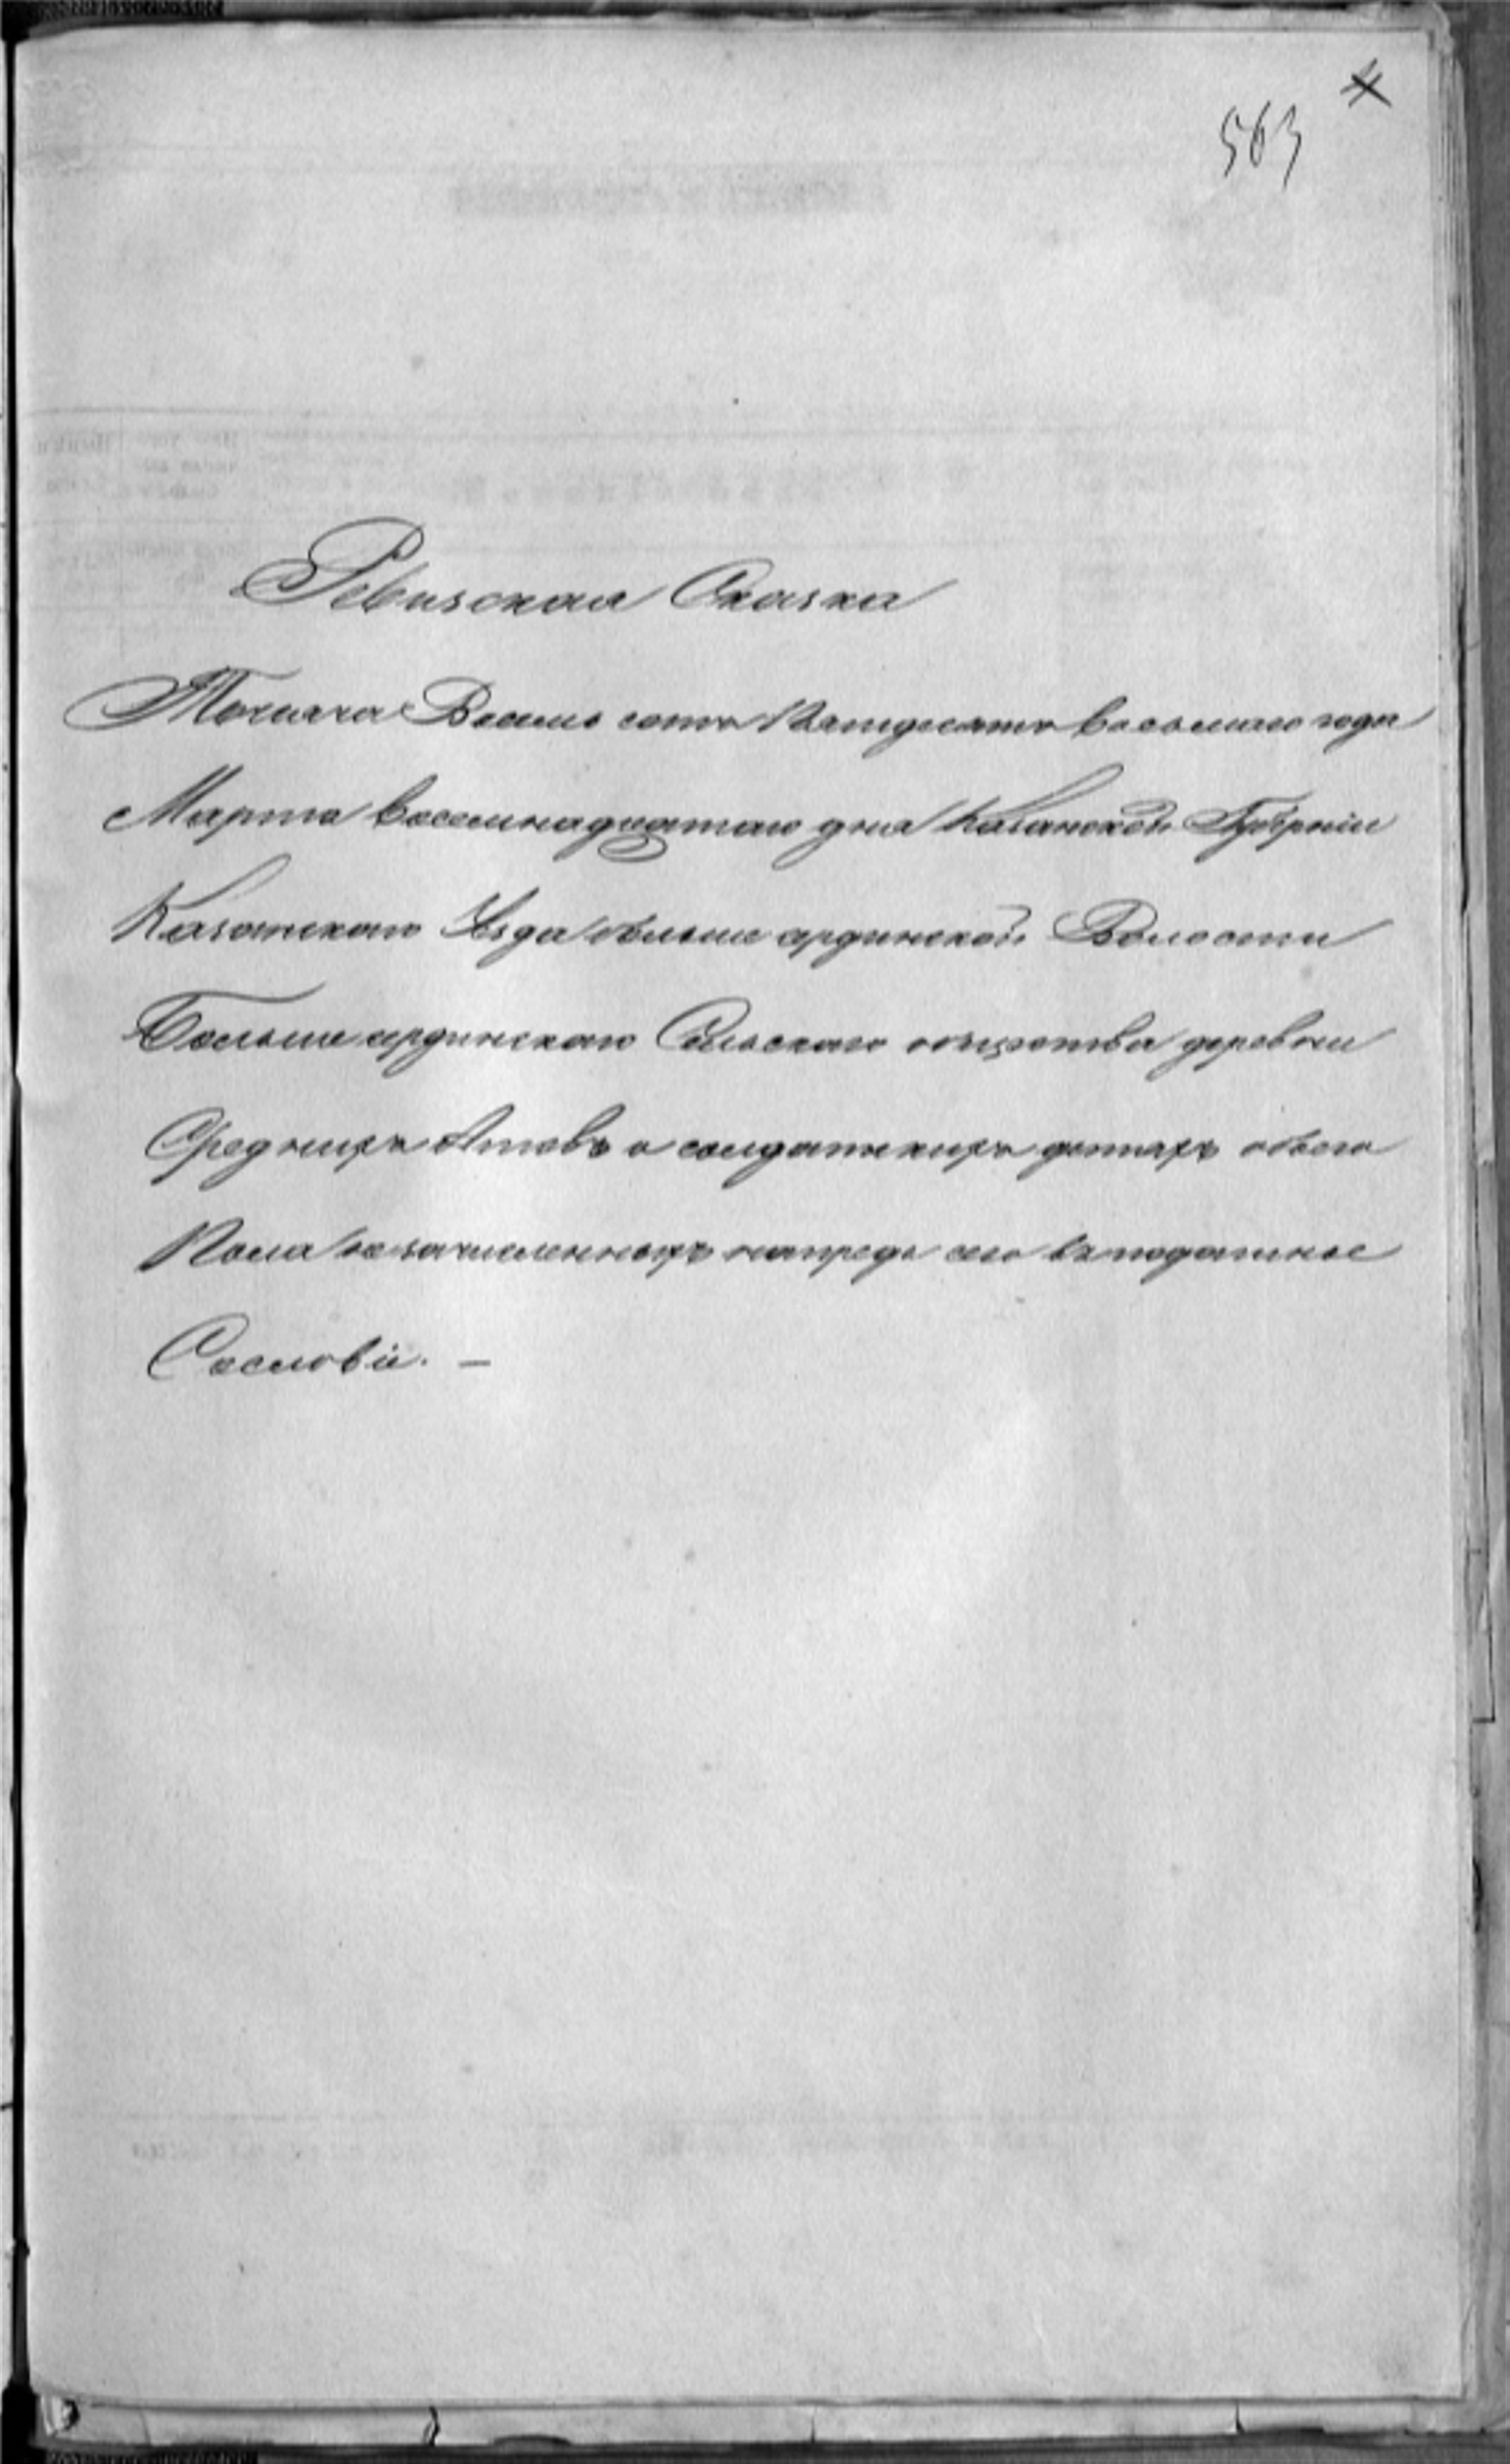 563
Ревизская Сказка
Тысяча Восемь сотъ Пятдесятъ восьмаго года
Марта восемнадцатаго дня Казанской Губерніи
Казанскаго Уѣзда больше ардинской Волости
Больше ардинскаго Сельскаго общества деревни
Среднихъ Атовъ о солдатскихъ детяхъ обоего
Пола не зачисленныхъ напредь сего въ податное
Сословіе. —